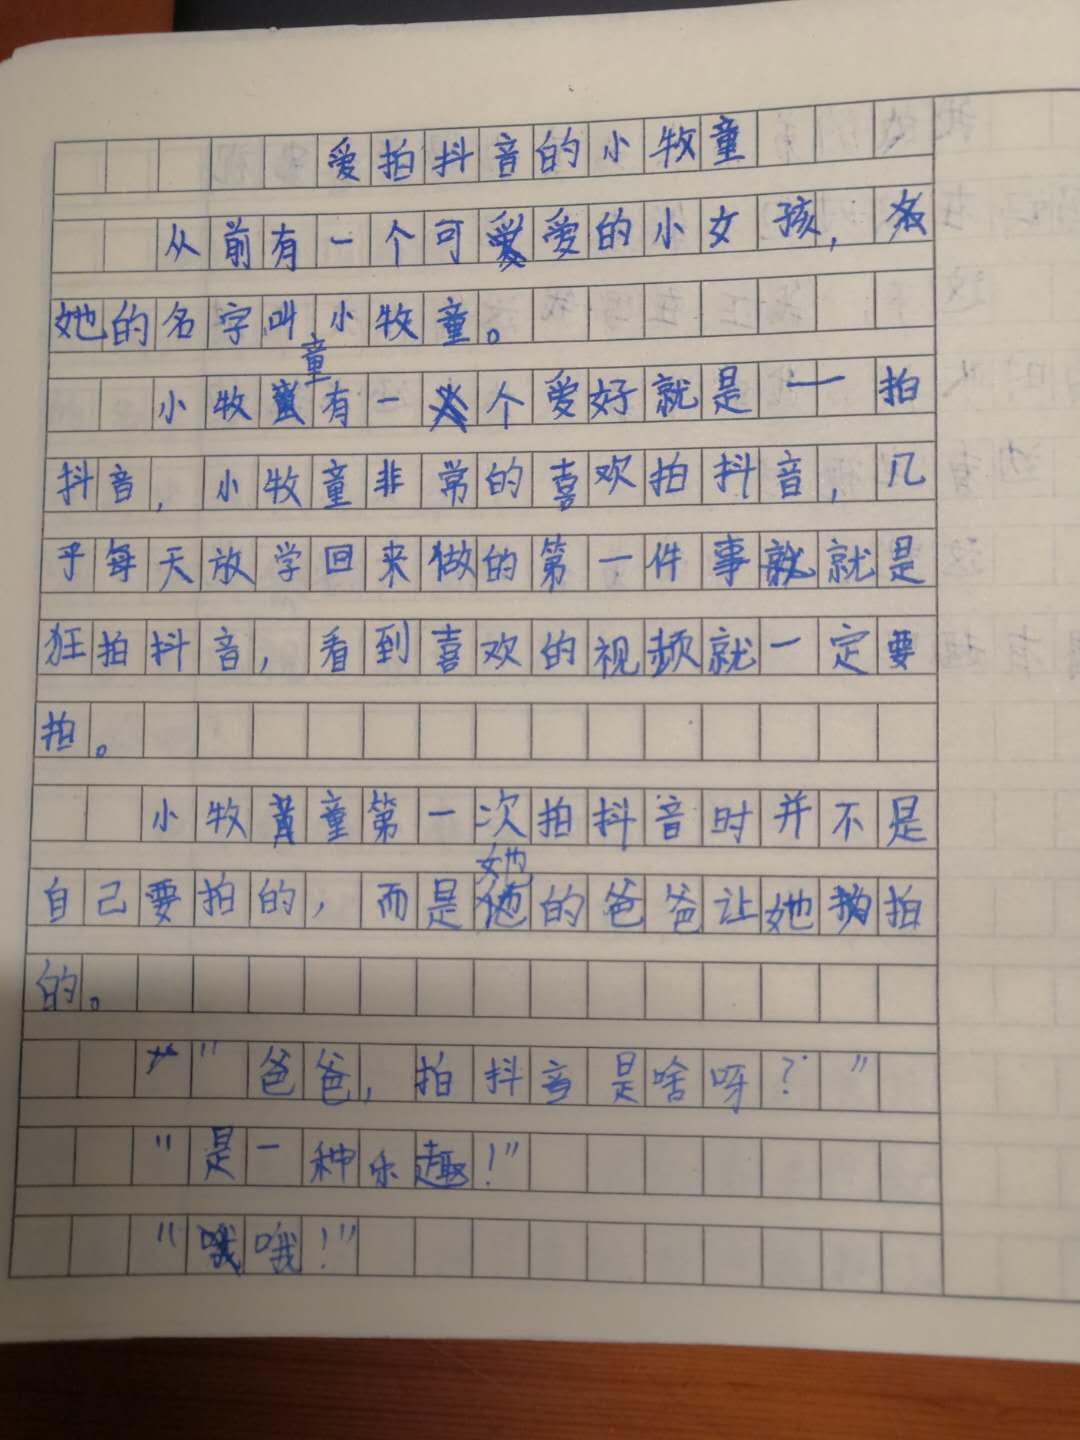 爱拍抖音的小牧童
从前有一个可爱的小女孩，
她的名字叫小牧童。
小牧童有一个爱好就是——拍
抖音，小牧童非常的喜欢拍抖音，几
乎每天放学回来做的第一件事就是
狂拍抖音，看到喜欢的视频就一定要
拍。
小牧童第一次拍抖音时并不是
自己要拍的，而是她的爸爸让她拍
的。
"爸爸，拍抖音是啥呀？"
"是一种乐趣！"
"哦哦！"